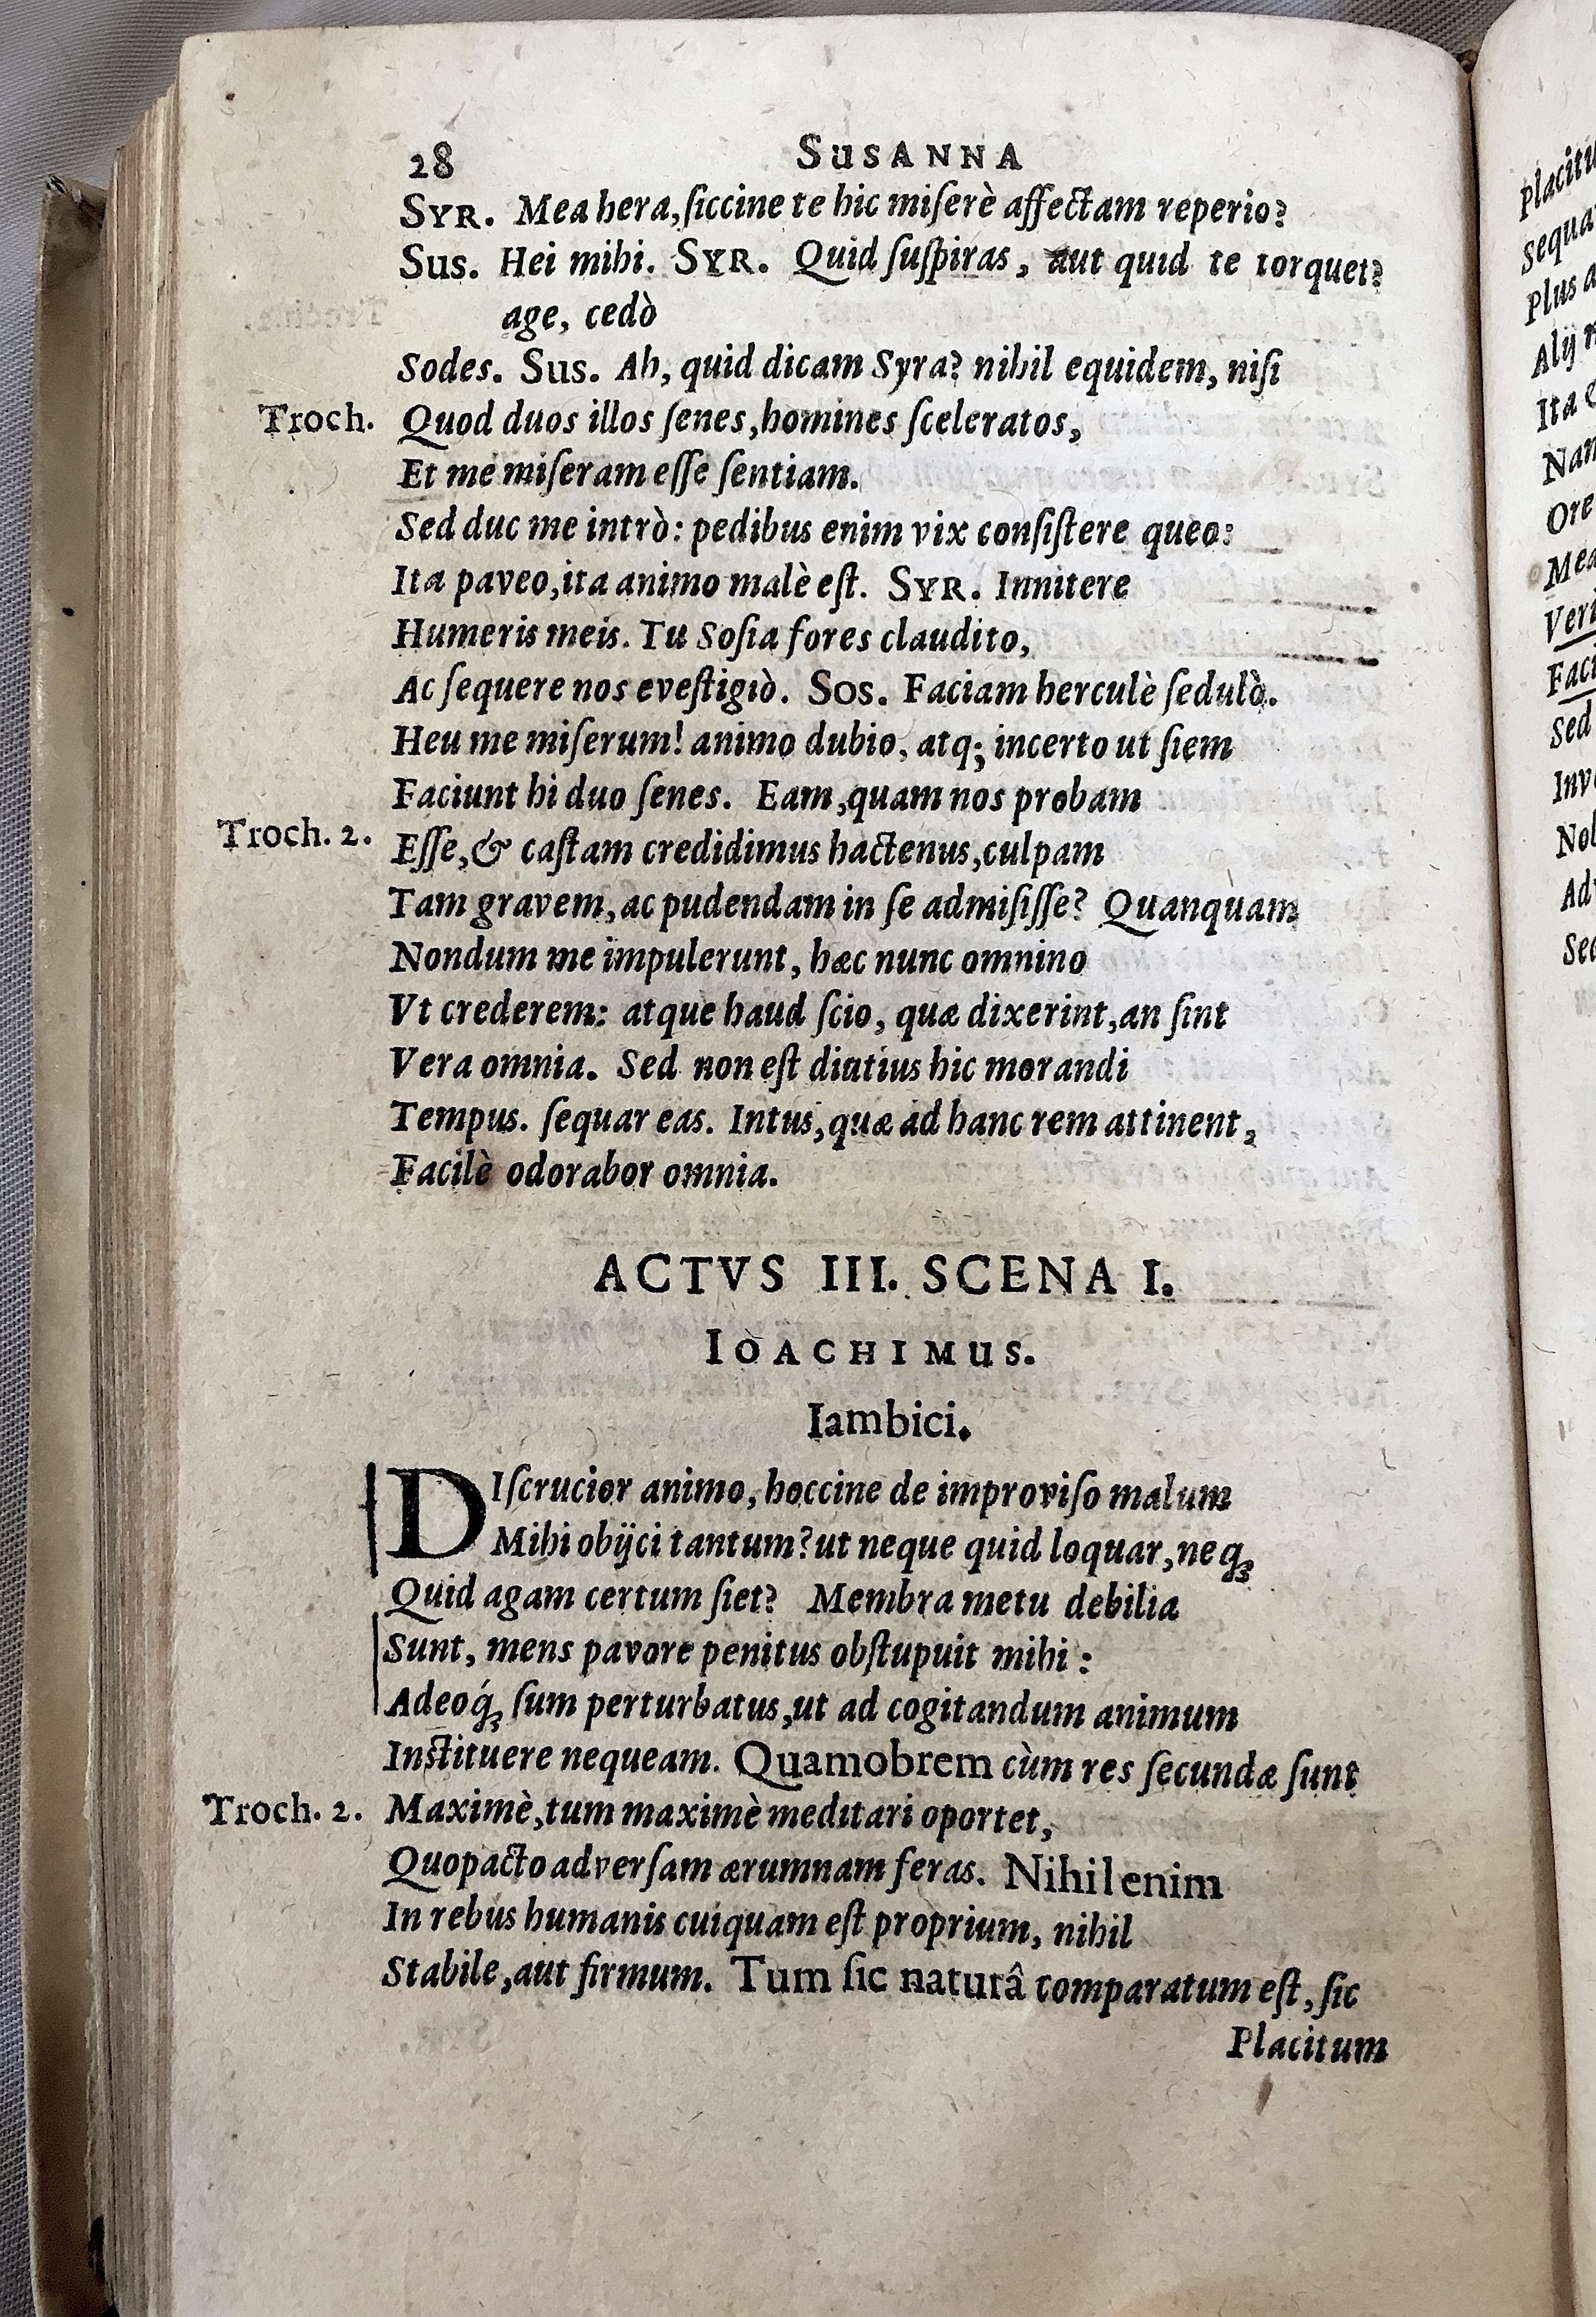 28 SUSANNA
SYR. Mea hera, ſiccine te hic miſerè affectam reperio?
Sus. Hei mihi. SYR. Quid ſuſpiras, aut quid te torquet?
age, cedò
Sodes. Sus. Ah, quid dicam Syra? nihil equidem, niſi
Troch. Quod duos illos ſenes, homines ſceleratos,
Et me miſeram eſſe ſentiam.
Sed duc me intrò: pedibus enim vix conſiſtere queo:
Ita paveo, ita animo malè eſt. SYR. Innitere
Humeris meis. Tu Soſia fores claudito,
Ac ſequere nos eveſtigiò. Sos. Faciam herculè ſedulò.
Heu me miſerum! animo dubio, atq; incerto ut ſiem
Faciunt hi duo ſenes. Eam, quam nos probam
Troch. 2. Eſſe, & caſtam credidimus hactenus, culpam
Tam gravem, ac pudendam in ſe admiſiſſe? Quanquam
Nondum me impulerunt, hæc nunc omnino
Vt crederem: atque haud ſcio, quæ dixerint, an ſint
Vera omnia. Sed non eſt diutius hic morandi
Tempus. ſequar eas. Intus, quæ ad hanc rem attinent,
Facilè odorabor omnia.
ACTVS III. SCENA I.
IOACHIMUS.
Iambici.
DIſcrucior animo, hoccine de improviſo malum
Mihi obijci tantum? ut neque quid loquar, neq;
Quid agam certum ſiet? Membra metu debilia
Sunt, mens pavore penitus obſtupuit mihi:
Adeoq́; ſum perturbatus, ut ad cogitandum animum
Inſtituere nequeam. Quamobrem cùm res ſecundæ ſunt
Troch. 2. Maximè, tum maximè meditari oportet,
Quopacto adverſam ærumnam feras. Nihil enim
In rebus humanis cuiquam eſt proprium, nihil
Stabile, aut firmum. Tum ſic naturâ comparatum eſt, ſic
Placitum